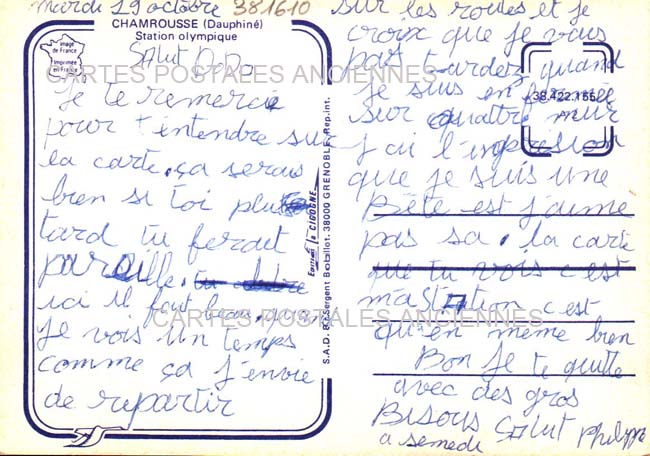 mardi 19 octobre 381610
CHAMROUSSE (Dauphiné)
Station olympique
image de France
Imprimée en France
Salut
CARTES POSTALES ANCIENNES
Je te remercie
pour t'entendre sur
la carte, ça serais
bien si toi plus
tard tu ferait
pareille.
ici il fait beau, que
CARTES POSTALES ANCIENNES
je vois un temps
comme ça j'envie
de repartir
Editions la CIGOGNE
S.A.D. 87, Sergent Bobillot, 38000 GRENOBLE, Rep.int.
38.422.155
A
sur les routes et je
croix que je vous
pas tarder quand
je suis en
sur quatre mur
j'ai l'impresion
que je suis une
Bête est j'aime
pas sa. la carte
que tu vois c'est
mastation c est
qu'en même bien
Bon Je te quitte
avec des gros
Bisous Salut Philippe
a semedi